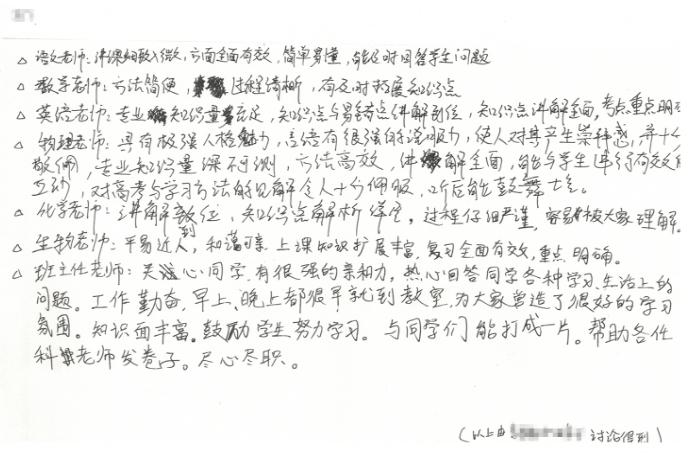 △ 语文老师：讲课细致入微，方面全面有效，简单易懂，能及时回答学生问题
△ 数学老师：方法简便，过程清晰，有及时拓展知识点
△ 英语老师：专业知识量充足，知识点与易错点讲解到位，知识点讲解全面，考点重点明确
△ 物理老师：具有极强人格魅力，言语有很强的说服力，使人对其产生崇拜感，并十分
敬佩，专业知识量深不可测，方法高效，讲解全面，能与学生进行有效的
互动，对高考与学习方法的见解令人十分佩服，听后能鼓舞士气。
△ 化学老师：讲解到位，知识点解析详尽，过程仔细严谨，容易被大家理解。
△ 生物老师：平易近人，和蔼可亲 上课知识扩展丰富，复习全面有效，重点明确。
△ 班主任老师：关心同学，有很强的亲和力，热心回答同学各种学习、生活上的
问题。工作勤奋，早上、晚上都很早就到教室，为大家营造了很好的学习
氛围。知识面丰富。鼓励学生努力学习。与同学们能打成一片。帮助各任
科老师发卷子。尽心尽职。
（以上由 讨论得到）